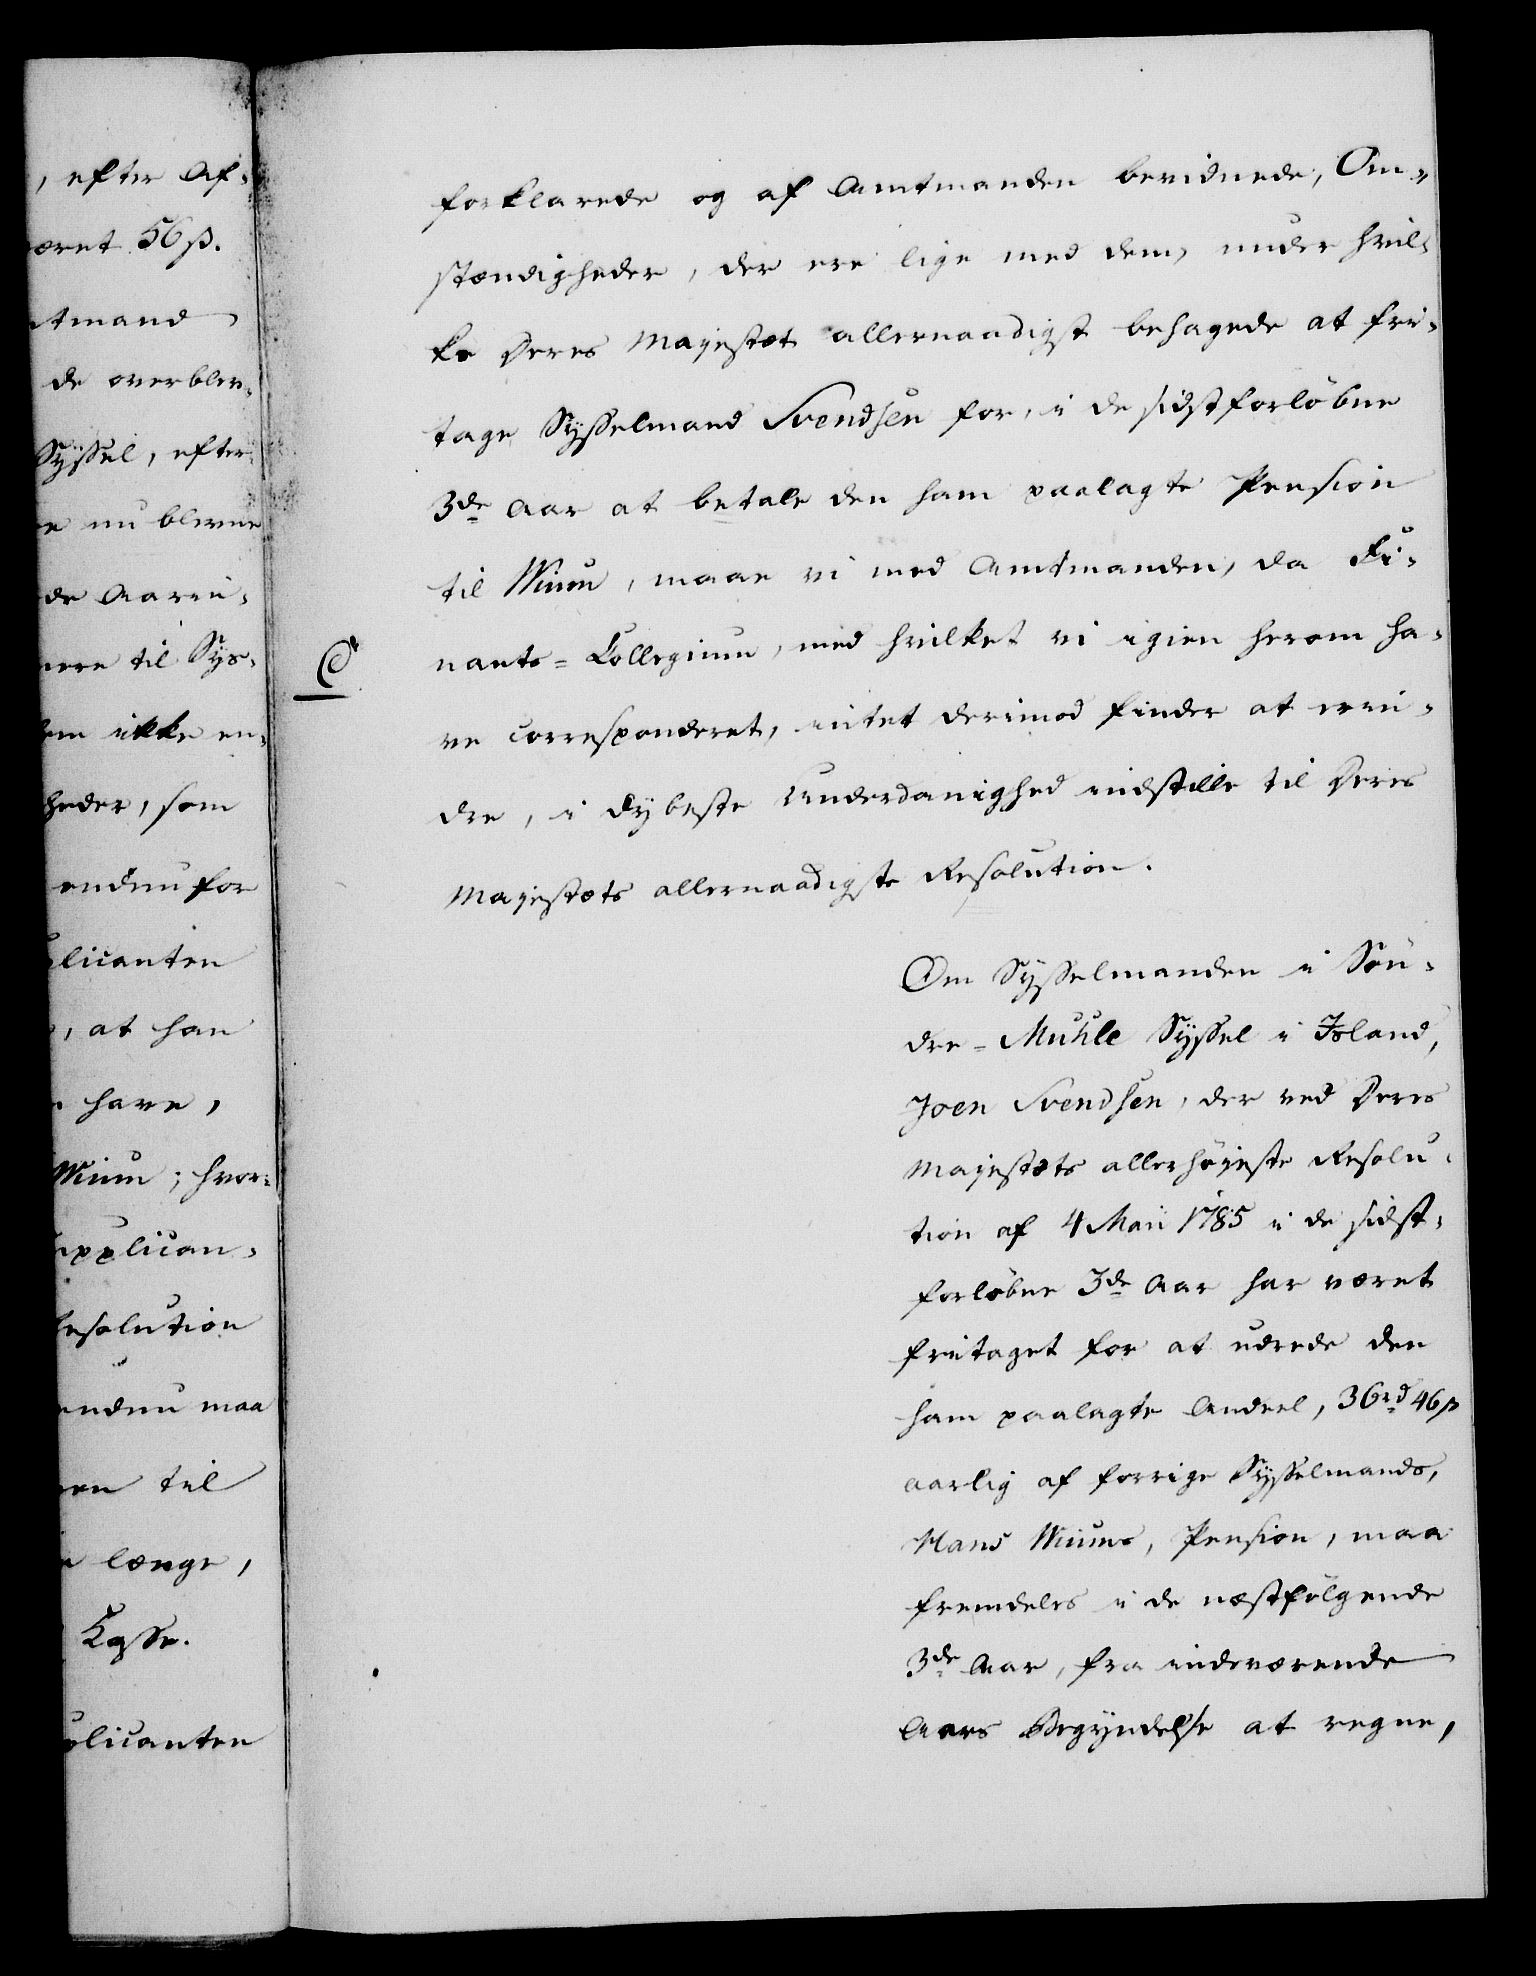 , efter Af-
været 56 ß.
tmand
de overblev-
Syssel, efter-
e nu blevne
de Aarin-
nere til Sys-
em ikke en-
heder, som
endnu for
plicanten
, at han
have,
Wium; hvor-
upplican-
Resolution
endnu maa
en til
længe,
Casse.
plicanten
forklarede og af Amtmanden bevidnede, Om-
stændigheder, der ere lige med dem, under hvil-
ke Deres Majestæt allernaadigst behagede at fri-
tage Sysselmand Svendsen for, i de sidstforløbne
3de Aar at betale den ham paalagte Pension
til Wium, maae vi med Amtmanden, da Fi-
nants-Collegium, med hvilket vi igien herom ha-
C
ve corresponderet, intet derimod finder at erin-
dre, i dybeste Underdanighed indstille til Deres
Majestæts allernaadigste Resolution.
Om Sysselmanden i Søn-
dre-Muhle Syssel i Island,
Joen Svendsen, der ved Deres
Majestæts allerhøjeste Resolu-
tion af 4 Maii 1785 i de sidst-
forløbne 3de Aar har været
fritaget for at udrede den
ham paalagte Andeel, 36 rd 46 ß
aarlig af forrige Sysselmands,
Hans Wiums, Pension, maa
fremdeles i de næstfølgende
3de Aar, fra indeværende
Aars Begyndelse at regne,